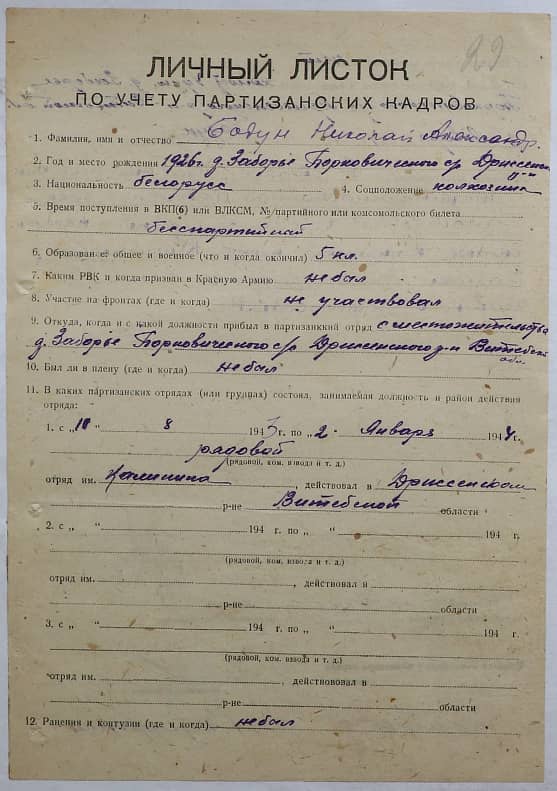 29
ЛИЧНЫЙ ЛИСТОК
ПО УЧЕТУ ПАРТИЗАНСКИХ КАДРОВ
1. Фамилия, имя и отчество Бодун Николай Александр.
2. Год и место рождения 1926г. д. Заборье Борковического с/с Дриссенск
р-н
3. Национальность белорусс 4. Соцположение колхозник
5. Время поступления в ВКП(б) или ВЛКСМ, № партийного или комсомольского билета
беспартийный
6. Образование общее и военное (что и когда окончил) 5 кл.
7. Каким РВК и когда призван в Красную Армию не был
8. Участие на фронтах (где и когда) не участвовал
9. Откуда, когда и с какой должности прибыл в партизанский отряд с местожительства
д. Заборье Борковического с/с Дриссенского р-н Витебск
обл.
10. Был ли в плену (где и когда) не был
11. В каких партизанских отрядах (или группах) состоял, занимаемая должность и район действия
отряда:
1. с „10“ 8 1943 г. по „2“ Января 1944 г.
рядовой
(рядовой, ком. взвода и т. д.)
отряд им. Калинина, действовал в Дриссенском
р-не Витебской области
2. с „ “ 194 г. по „ “ 194 г.
(рядовой, ком. взвода и т. д.)
отряд им. , действовал в
р-не области
3. с „ “ 194 г. по „ “ 194 г.
(рядовой, ком. взвода и т. д.)
отряд им. , действовал в
р-не области
12. Ранения и контузии (где и когда) не был